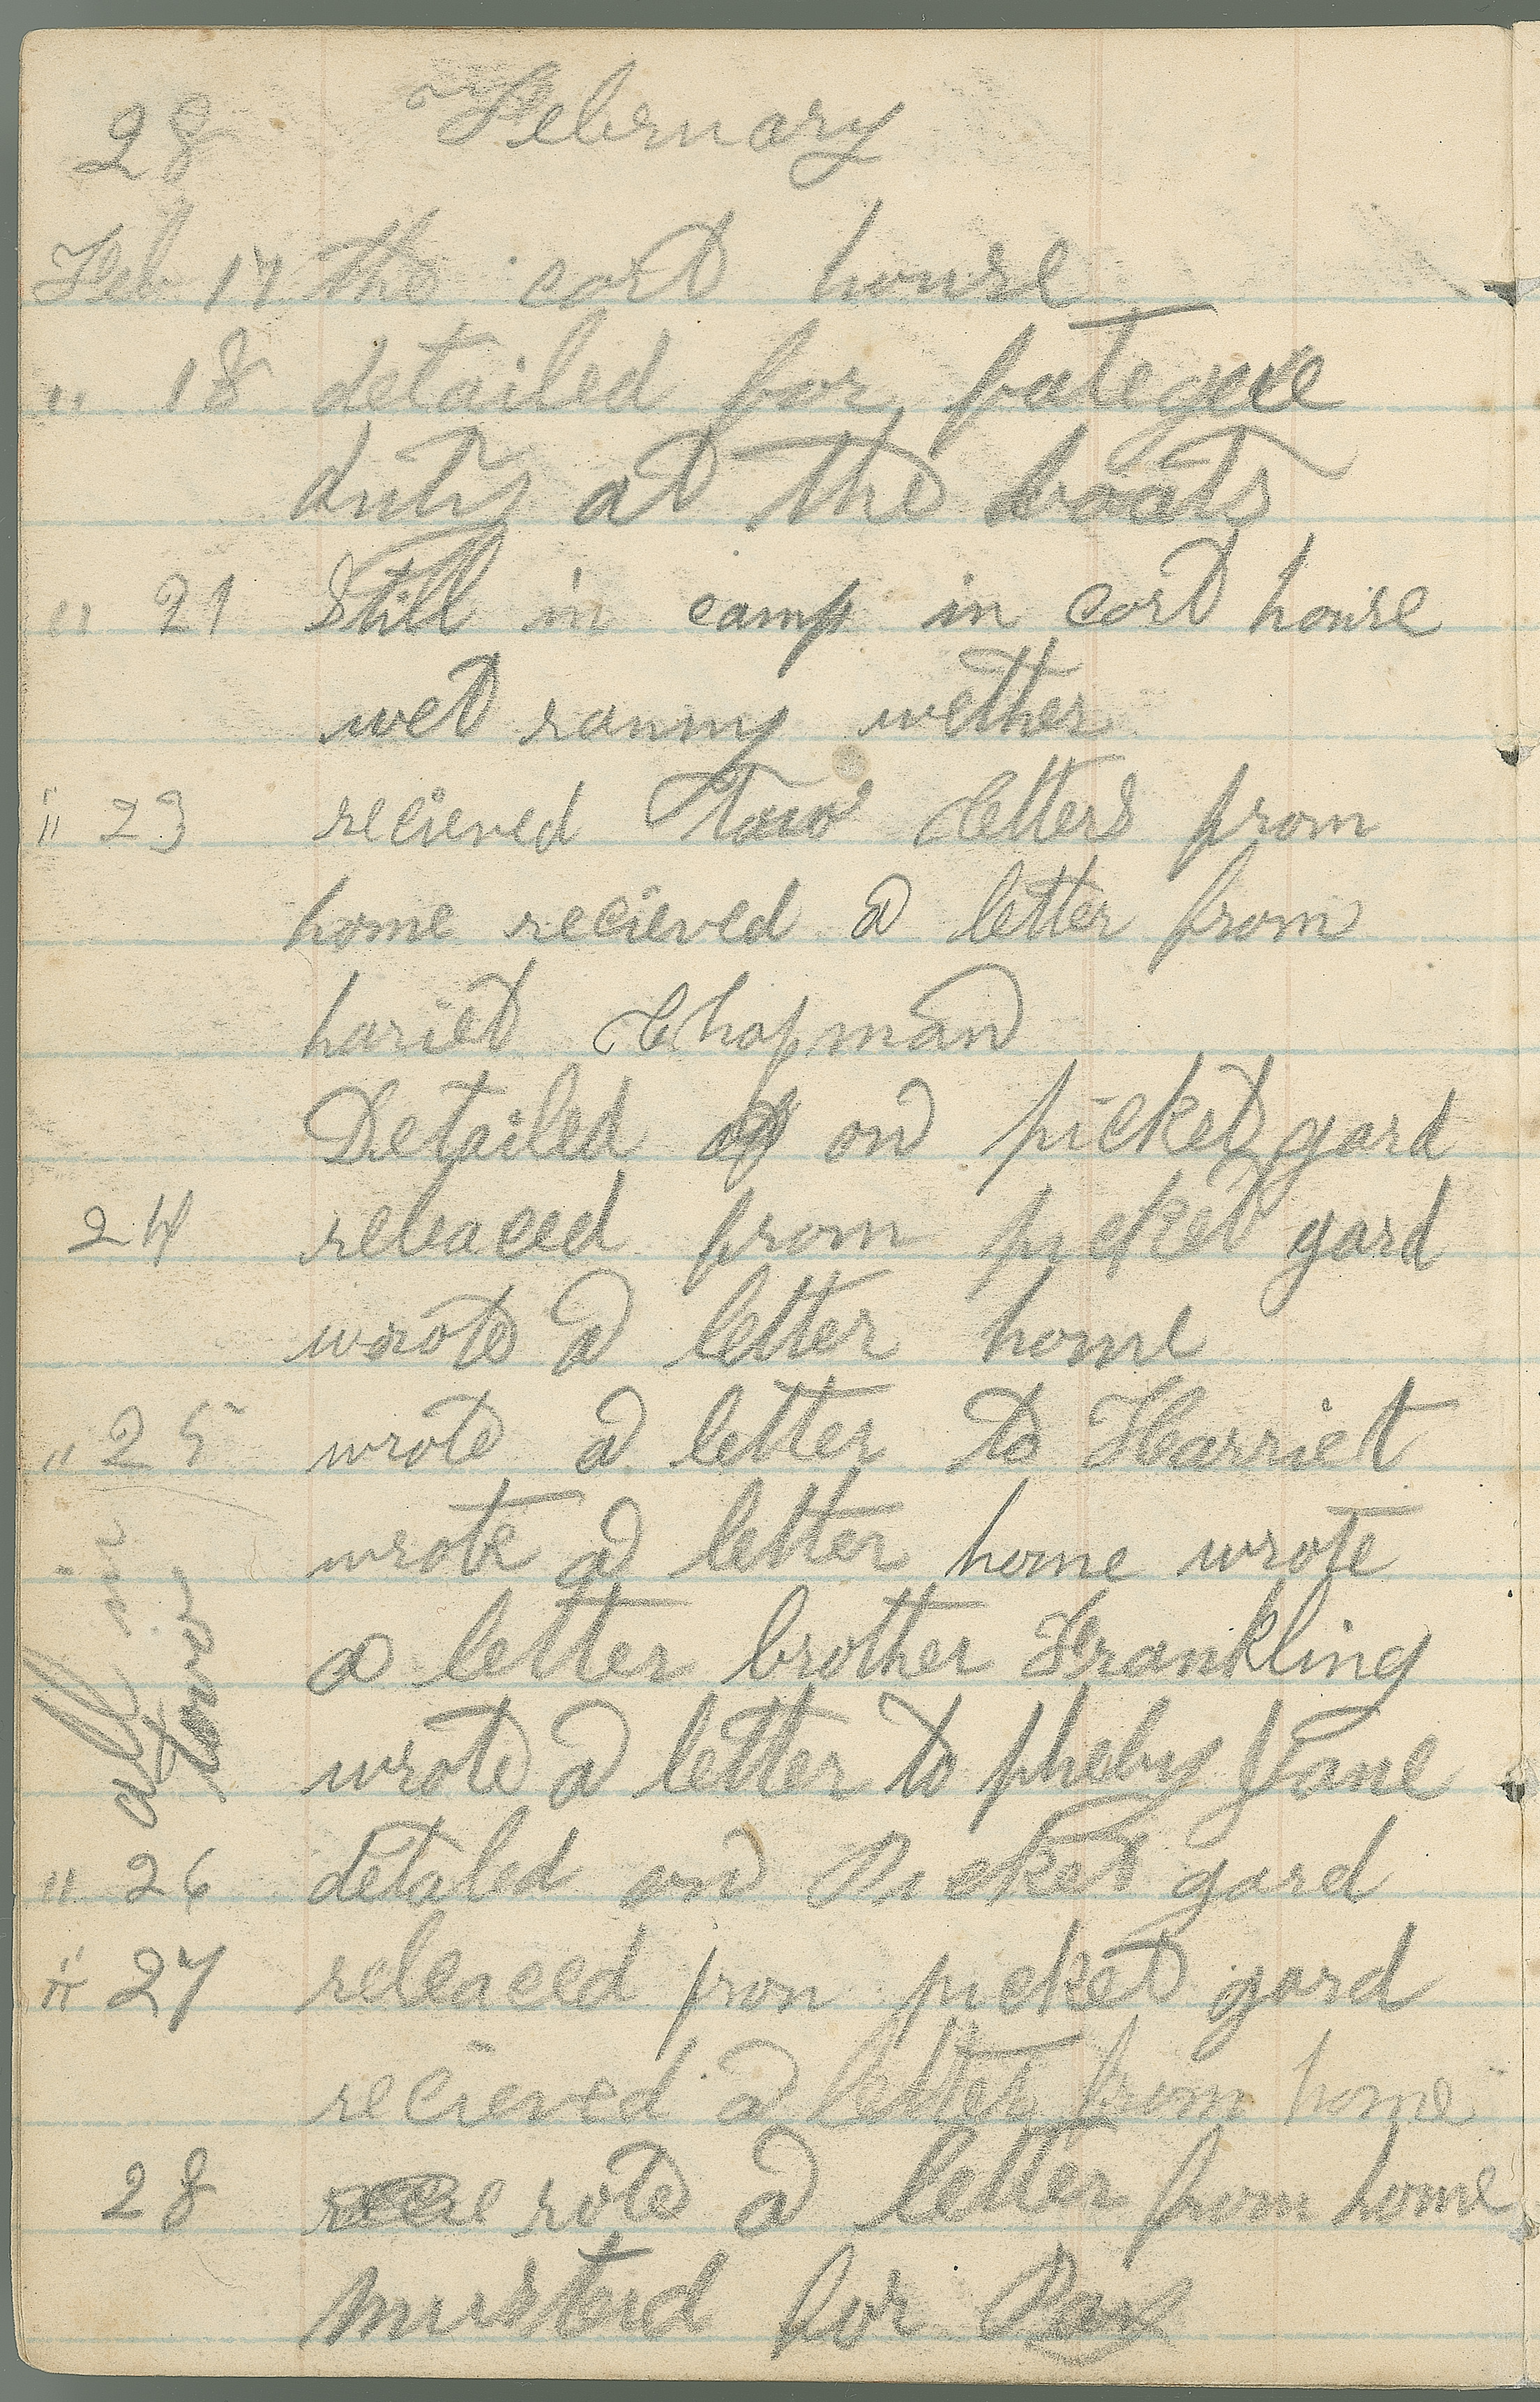 28 February
Feb 17 the cort house
" 18 detailed for fategue
duty at the boats
" 21 Still in camp in cort house
wet ranny wether
" 23 recieved two letters from
home recieved a letter from
hariet Chapman
Detailed of on picket gard
24 releaced from picket gard
wrote a letter home
" 25 wrote a letter to Harriet
wrote a letter home wrote
a letter brother Frankling
wrote a letter to pheby Jane
" 26 detaled on Picket gard
" 27 releaced fron picket gard
recieved a letter from home
28 rote a letter from home
musterd for Pay